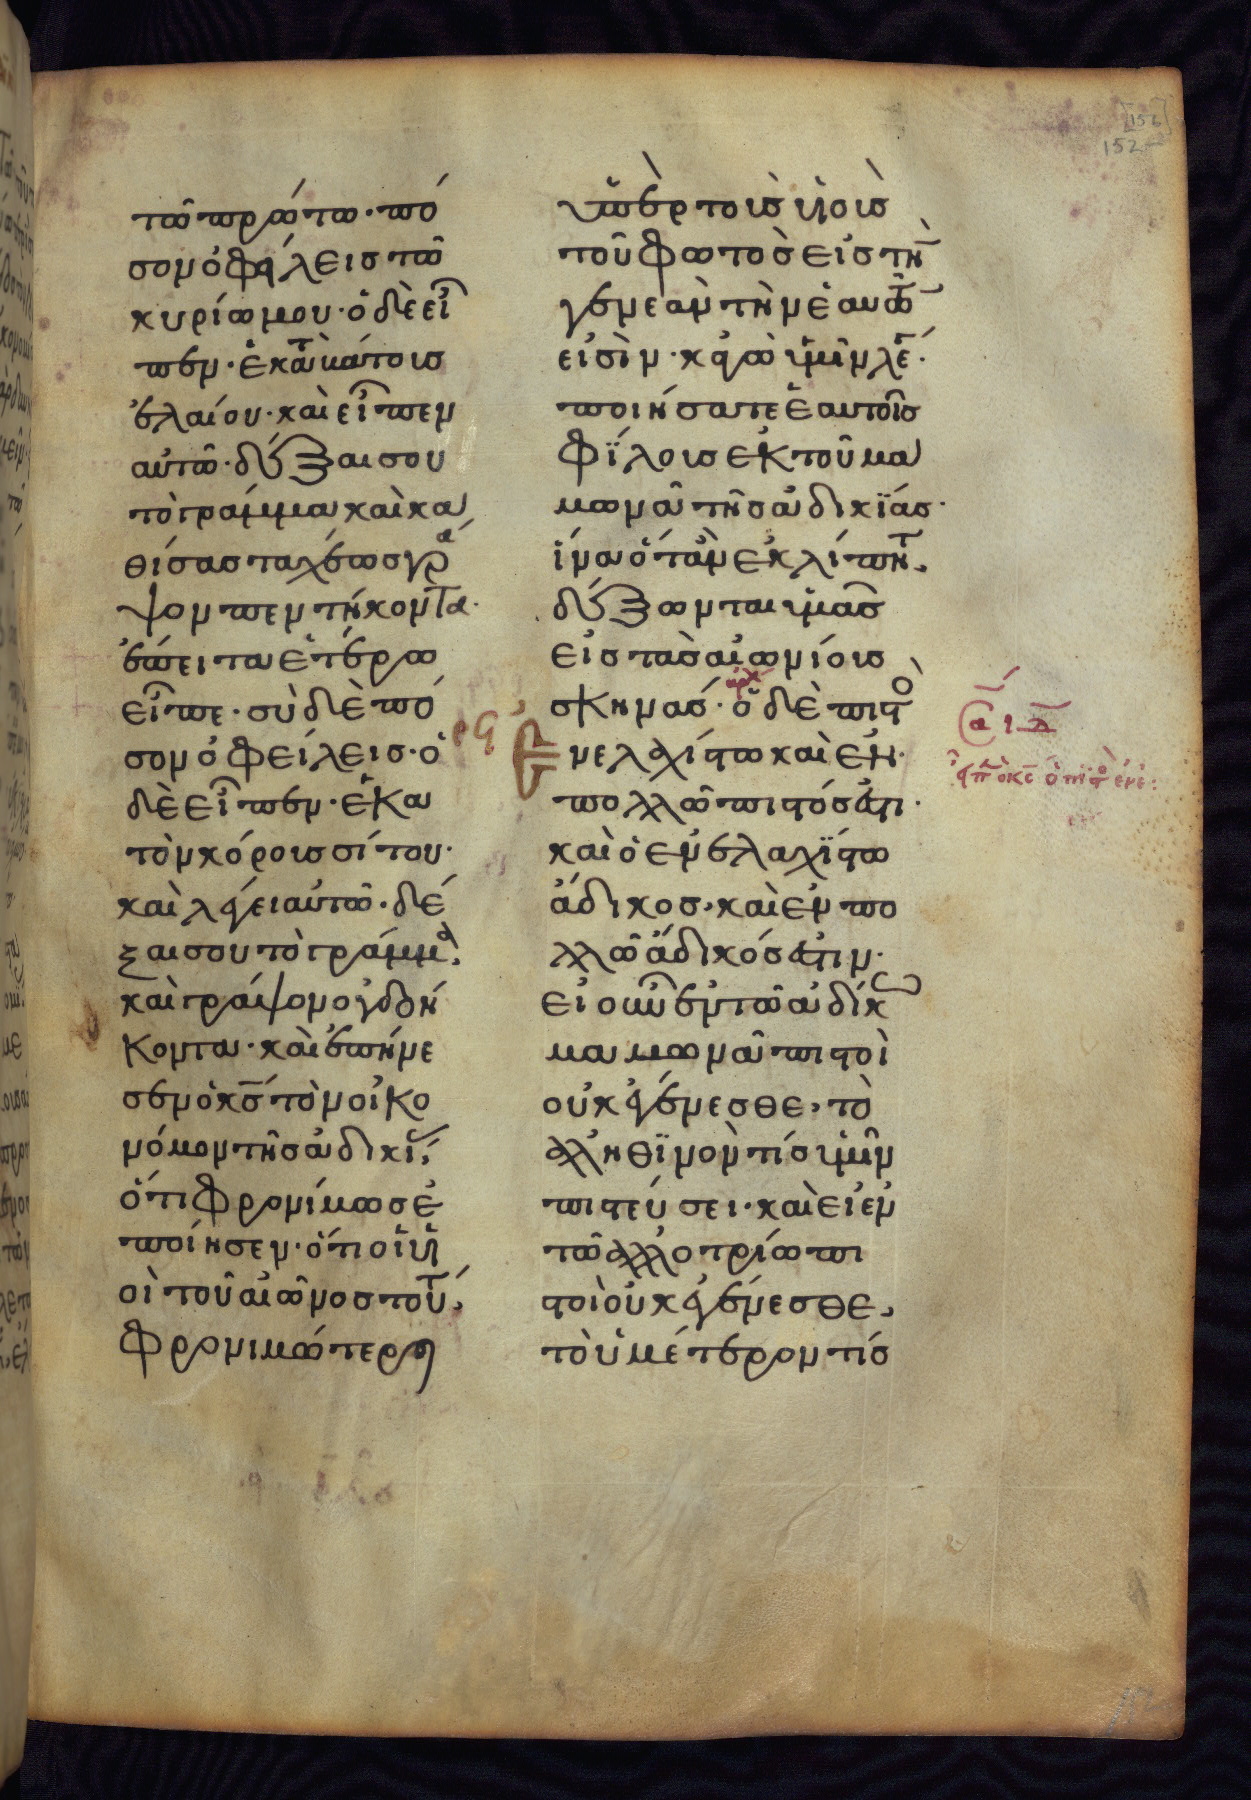 τῶ πρώτω· πό
σον ὀφείλεις τῶ
κυρίω μου· ὁ δὲ εἶ
πεν· ἑκατὸν βάτοις
ἐλαίου· καὶ εἶπεν
αὐτῶ· δέξαι σου
τὸ γράμμα καὶ κα
θίσας ταχέως γρά
ψον πεντήκοντα·
ἔπειτα ἑτέρω
εἶπε· σὺ δὲ πό
σον ὀφείλεις· ὁ
δὲ εἶπεν· ἑκα
τὸν κόρους σίτου·
καὶ λέγει αὐτῶ· δέ
ξαι σου τὸ γράμμα·
καὶ γράψον ὀγδοή
κοντα· καὶ ἐπήνε
σεν ὁ κς τὸν οἰκο
νόμον τῆς ἀδικί·
ὅτι φρονίμως ἐ
ποίησεν· ὅτι οἱ υἱ
οὶ τοῦ αἰῶνος τού·
φρονιμώτεροι
ὑπὲρ τοὺς υἱοὺς
τοῦ φωτὸς εἰς τὴν
γενεὰν τὴν ἑαυτῶ
εἰσὶν· κἀγὼ ὑμῖν λέ·
ποιήσατε ἑαυτοῖς
φίλους ἐκ τοῦ μα
μωνᾶ τῆς ἀδικίας·
ἵνα ὅταν ἐκλίπητ·
δέξωνται ὑμᾶς
εἰς τὰς αἰωνίους
σκηνάς· ὁ δὲ πιστὸ
ἐν ἐλαχίστω καὶ ἐν·
πολλῶ πιστός ἐστι·
καὶ ὁ ἐν ἐλαχίστω
ἄδικος· καὶ ἐν πο
λλῶ ἄδικός ἐστιν·
εἰ οὖν ἐν τῶ ἀδίκω
μαμωνᾶ πιστοὶ
οὐκ ἐγένεσθε, τὸ
ἀληθινὸν τίς ὑμῖν
πιστεύσει· καὶ εἰ ἐν
τῶ ἀλλοτρίω πι
στοὶ οὐκ ἐγένεσθε,
τὸ ὑμέτερον τίς
152